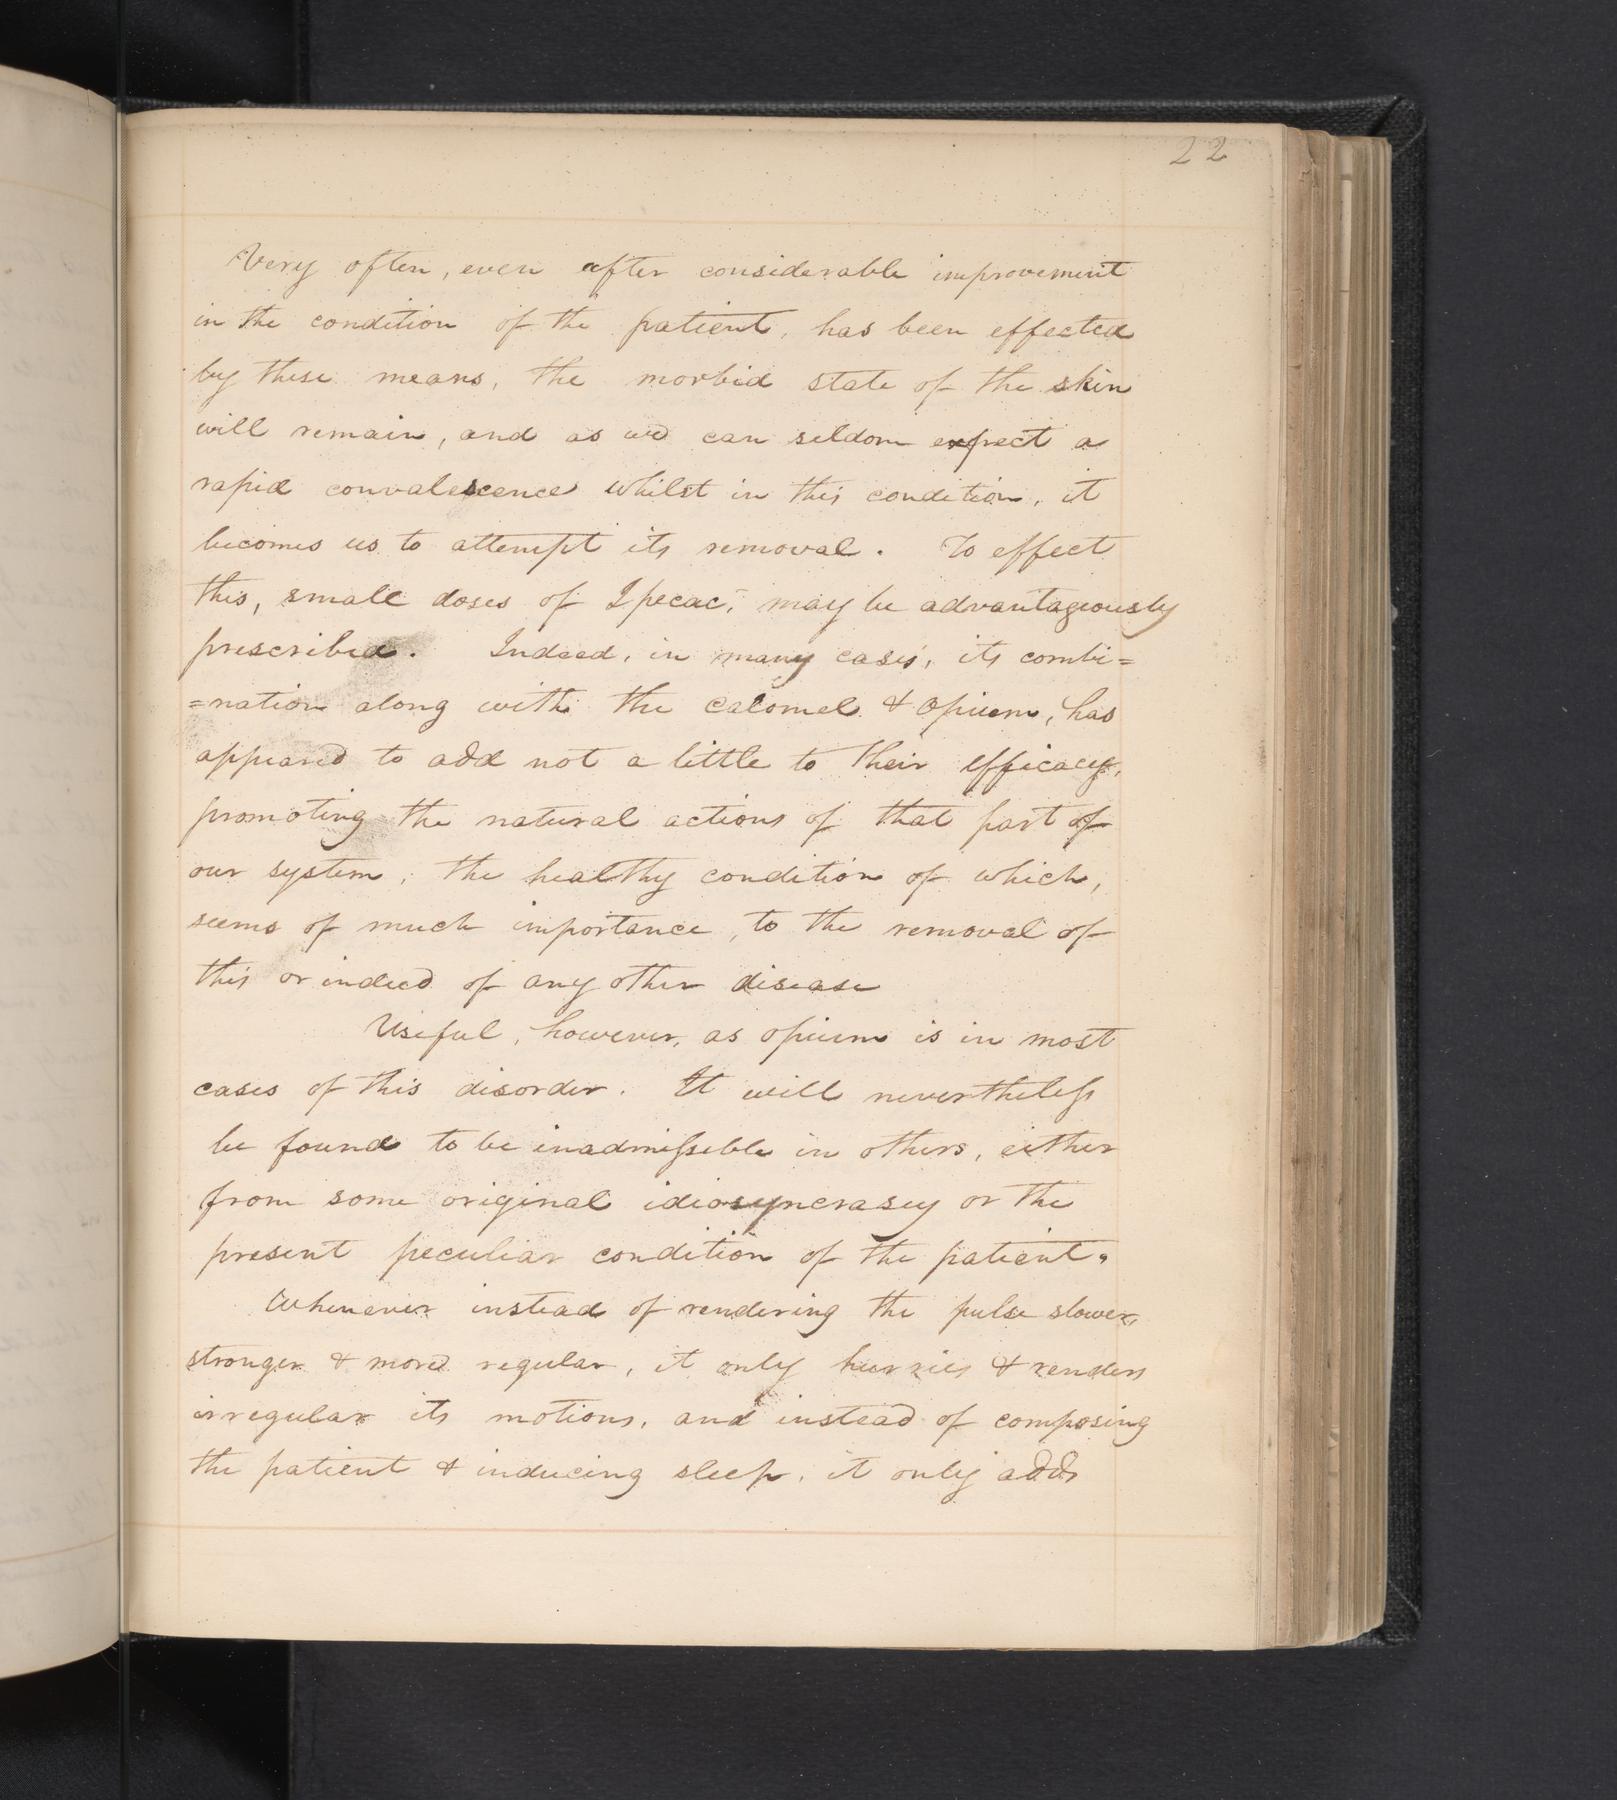 22
Very often, even after considerable improvement
in the condition of the patient, has been effected
by these means, the morbid state of the skin
will remain, and as we can seldom expect a
rapid convalescence whilst in this condition, it
becomes us to attempt its removal. To effect
this, small doses of Ipecac; may be advantageously
prescribed. Indeed, in many cases, its combi=
=nation along with the Calomel & Opium, has
appeared to add not a little to their efficacy,
promoting the natural actions of that part of
our system, the healthy condition of which,
seems of much importance, to the removal of
this or indeed of any other disease
Useful, however, as opium is in most
cases of this disorder. It will nevertheless
be found to be inadmissible in others, either
from some original idiosyncrasey or the
present peculiar condition of the patient.
Whenever instead of rendering the pulse slower,
stronger & more regular, it only hurries & renders
irregular its motions, and instead of composing
the patient & inducing sleep, it only adds